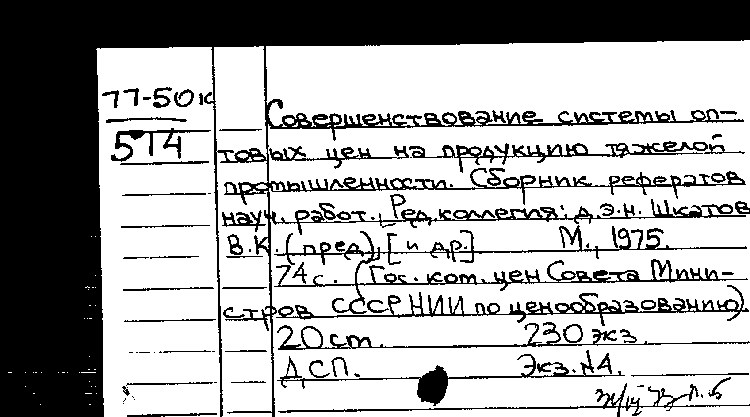 77-50к
574
Совершенствование системы оп-
товых цен на продукцию тяжелой
промышленности. Сборник рефератов
науч. работ. [Ред.коллегия: д.э.н. Шкатов
В.К. (пред), [и др.] М., 1975.
74 с. (Гос. ком. цен Совета Мини-
стров СССР НИИ по ценообразованию).
20 ст. 230 экз.
ДСП. Экз. №4.